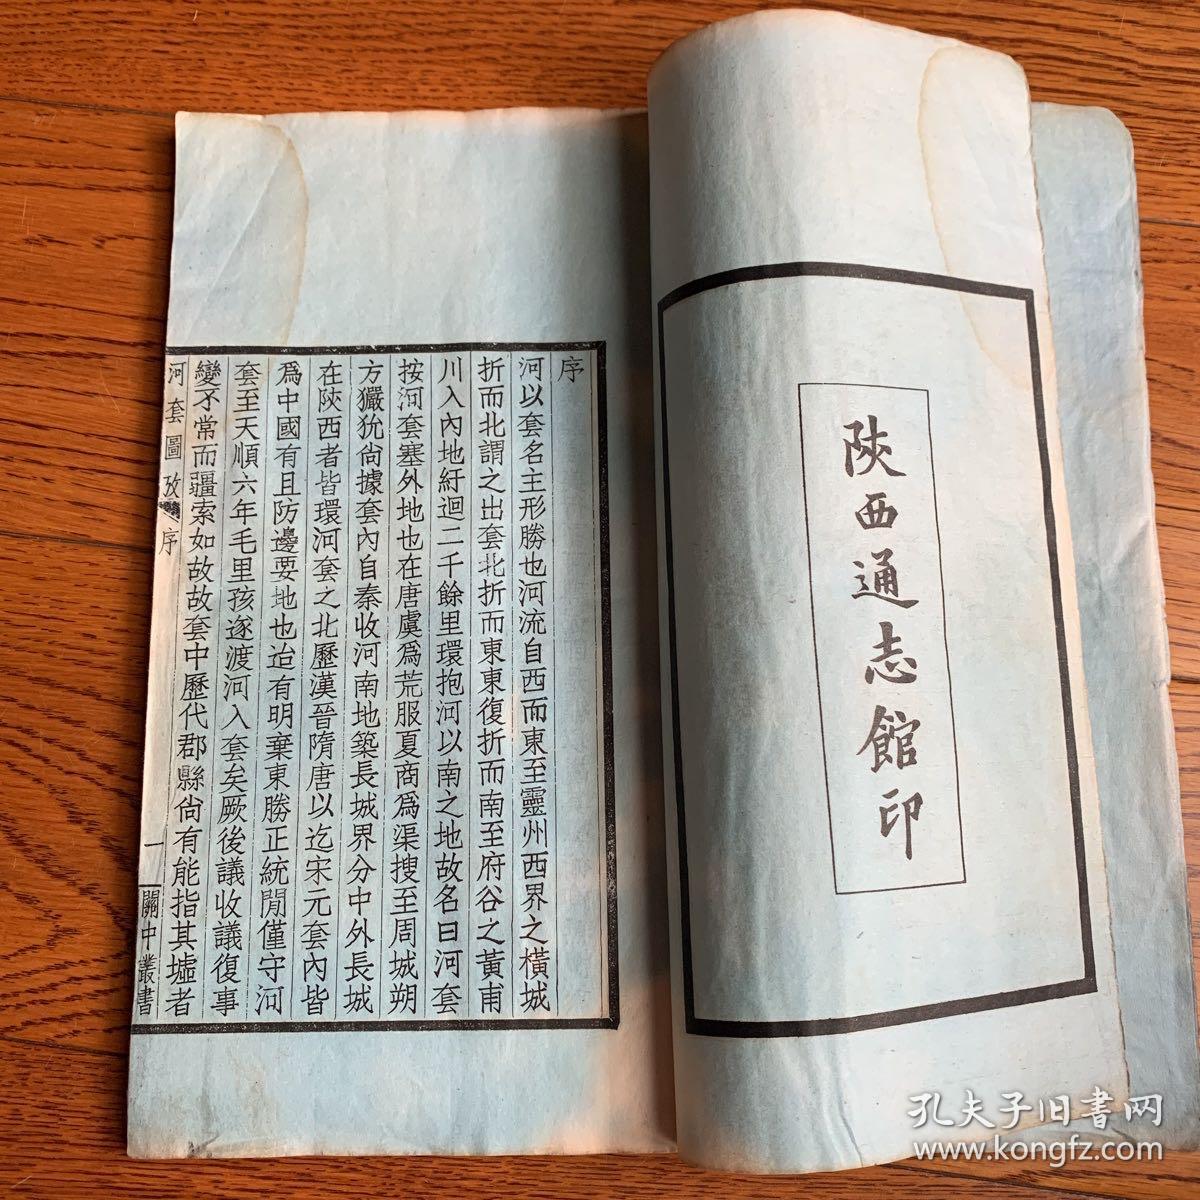 陝西通志館印
序
河以套名主形勝也河流自西而東至靈州西界之橫城
折而北謂之出套北折而東東復折而南至府谷之黃甫
川入內地紆迴二千餘里環抱河以南之地故名曰河套
按河套塞外地也在唐虞爲荒服夏商爲渠搜至周城朔
方玁狁尙據套內自秦收河南地築長城界分中外長城
在陝西者皆環河套之北歷漢晉隋唐以迄宋元套內皆
爲中國有且防邊要地也迨有明棄東勝正統閒僅守河
套至天順六年毛里孩逐渡河入套矣厥後議收議復事
變不常而疆索如故故套中歷代郡縣尙有能指其墟者
河套圖攷 序 一 關中叢書
孔夫子旧书网
www.kongfz.com